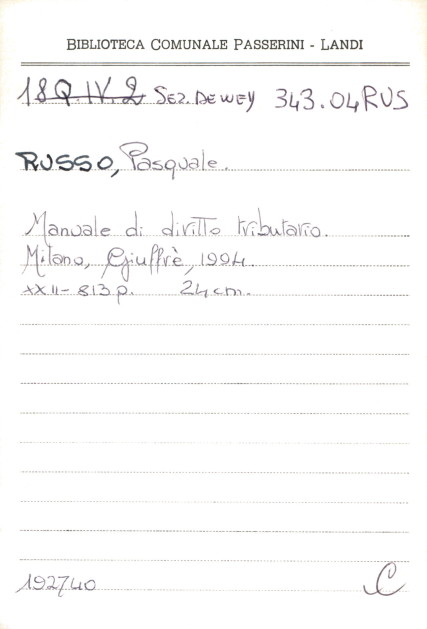 BIBLIOTECA COMUNALE PASSERINI - LANDI
18Q.IV.2 SEZ. DEWEY 343.04 RUS
RUSSO, Pasquale.
Manuale di diritto tributario.
Milano, Giuffrè, 1994.
XXII-813 p. 24 cm.
192740
C